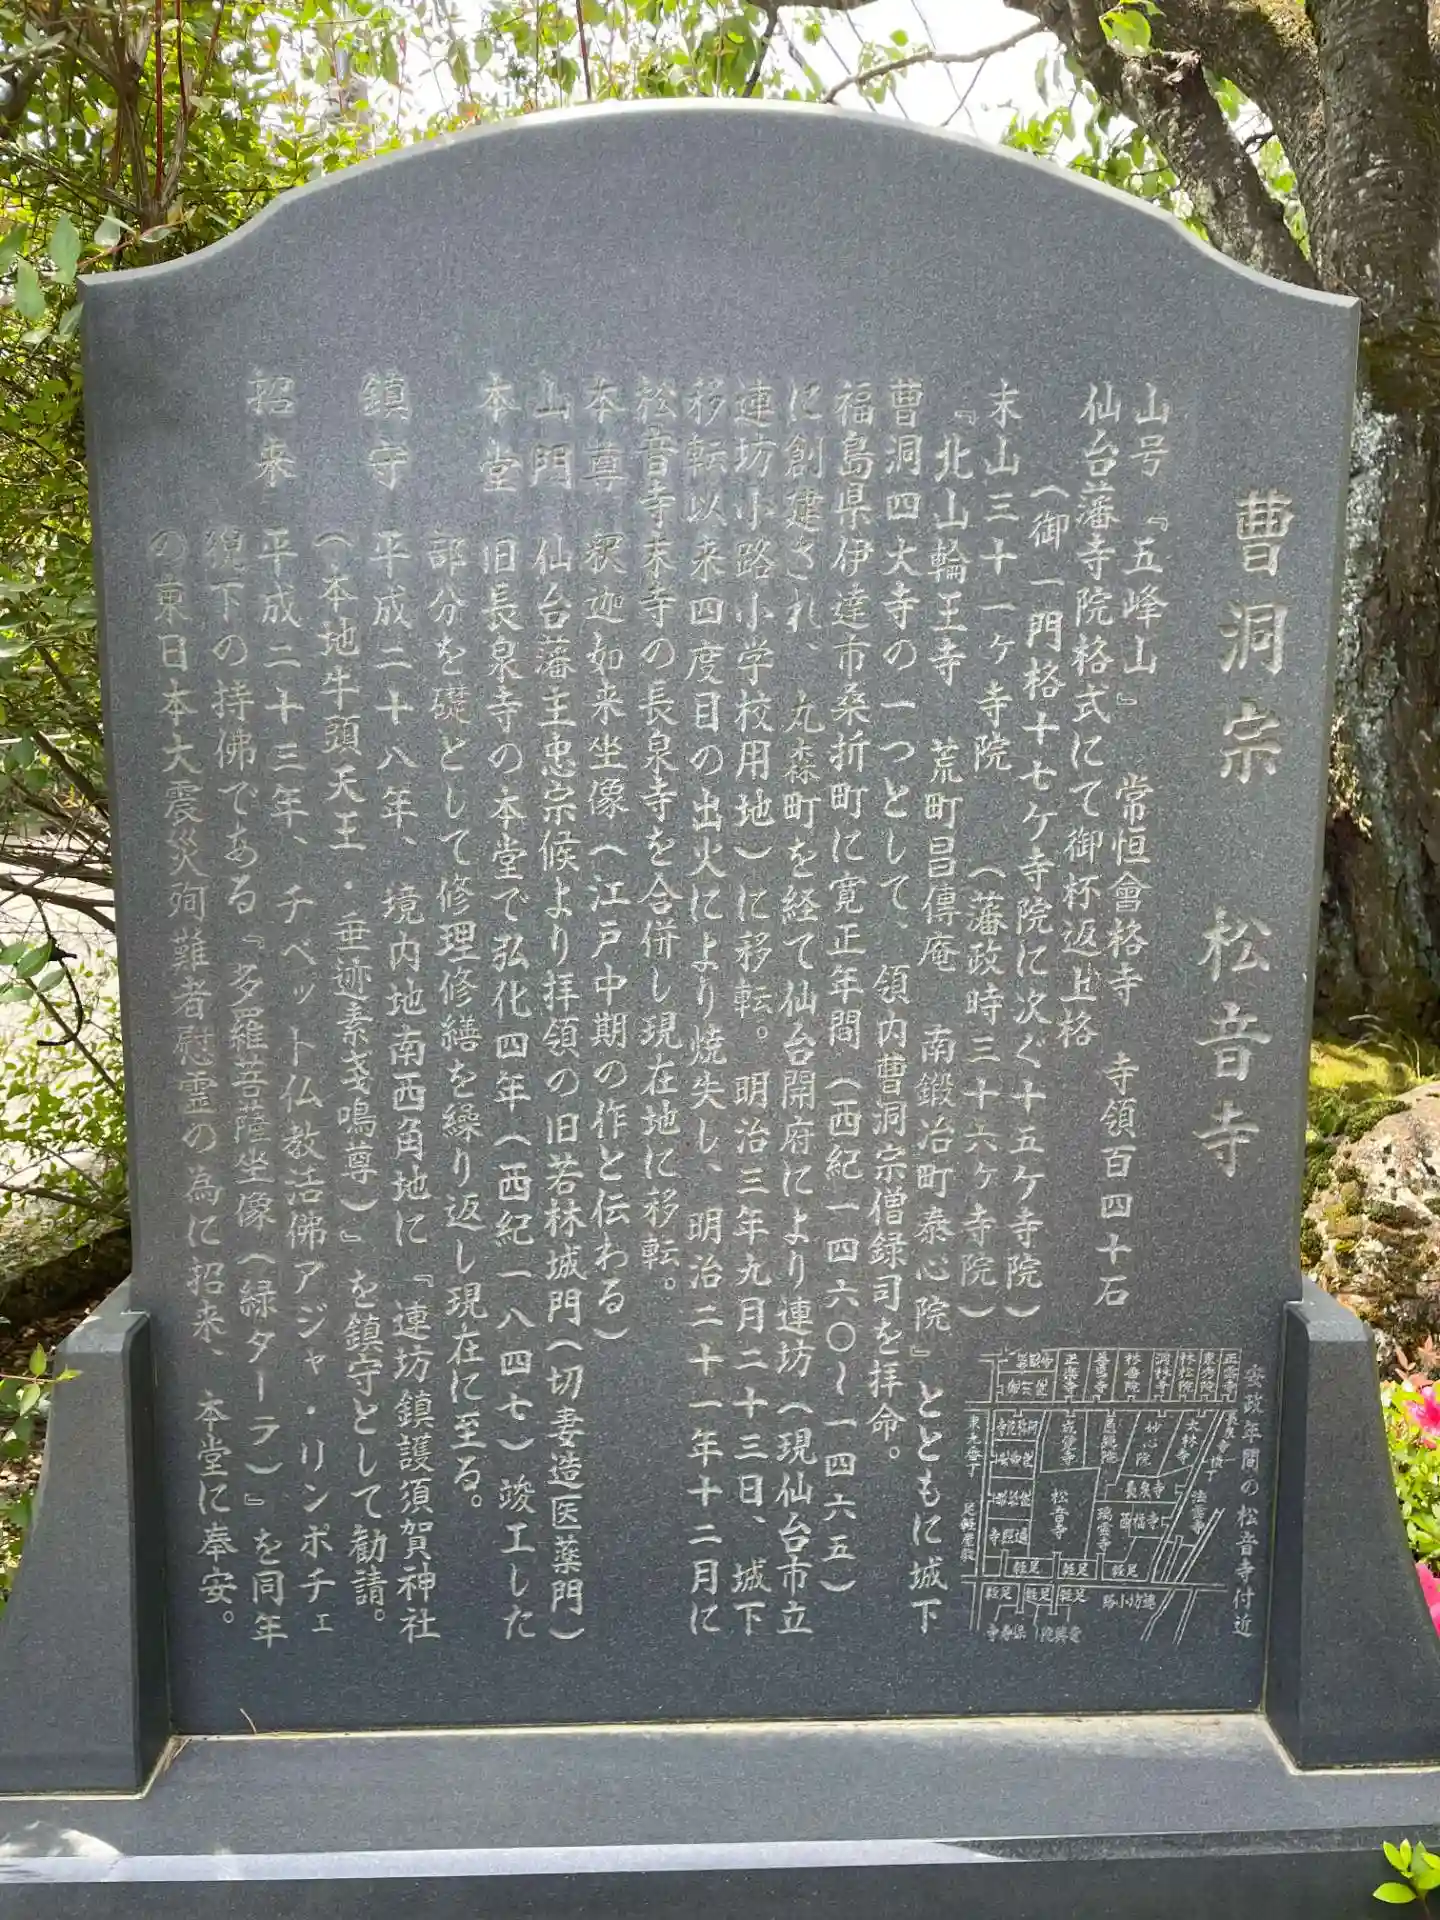 曹洞宗 松音寺
山号『五峰山』 常恒會格寺 寺領百四十石
仙台藩寺院格式にて御杯返上格
(御一門格十七ケ寺院に次ぐ十五ケ寺院)
末山三十一ヶ寺院 (藩政時三十六ヶ寺院)
『北山輪王寺 荒町昌傳庵 南鍛冶町泰心院』とともに城下
曹洞四大寺の一つとして、領内曹洞宗僧録司を拝命。
福島県伊達市桑折町に寛正年間(西紀一四六〇〜一四六五)
に創建され、丸森町を経て仙台開府により連坊(現仙台市立
連坊小路小学校用地)に移転。明治三年九月二十三日、城下
移転以来四度目の出火により焼失し、明治二十一年十二月に
松音寺末寺の長泉寺を合併し現在地に移転。
本尊 釈迦如来坐像(江戸中期の作と伝わる)
山門 仙台藩主忠宗候より拝領の旧若林城門(切妻造医薬門)
本堂 旧長泉寺の本堂で弘化四年(西紀一八四七)竣工した
部分を礎として修理修繕を繰り返し現在に至る。
鎮守 平成二十八年、境内地南西角地に『連坊鎮護須賀神社
(本地牛頭天王・垂迹素戔鳴尊)』を鎮守として勧請。
招来 平成二十三年、チベット仏教活佛アジャ・リンポチェ
猊下の持佛である『多羅菩薩坐像(緑ターラ)』を同年
の東日本大震災殉難者慰霊の為に招来、本堂に奉安。
安政年間の松音寺付近
正雲寺
東秀院
林松院
洞林寺
林香院
正楽寺
長泉寺横丁
大林寺
妙心院
成覚寺
法雲寺
長泉寺
松音寺
足軽
足軽
足軽
足軽
足軽
足軽
連坊小路
保寿寺